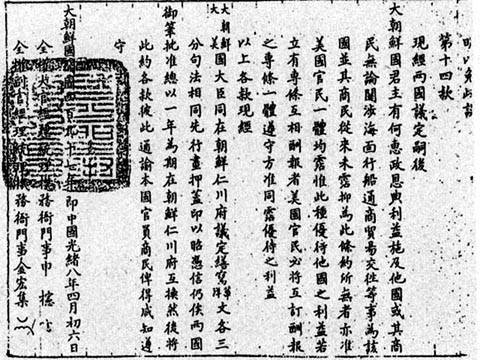 以免歧誤
第十四款
現經兩國議定嗣後
大朝鮮國君主有何惠政恩典利益施及他國或其商
民無論關涉海面行船通商貿易交往等事為該
國並其商民從來未霑抑為此條約所無者亦准
美國官民一體均霑惟此種優待他國之利益若
立有專條互相酬報者美國官民必將互訂酬報
之專條一體遵守方准同霑優待之利益
以上各款現經
大朝鮮大美國大臣同在朝鮮仁川府議定繕寫華洋文各三
分句法相同先行畫押蓋印以昭憑信仍俟兩國
御筆批准總以一年為期在朝鮮仁川府互換然後將
此約各款彼此通諭本國官員商民俾得咸知遵
守
大朝鮮國開國四百九十一年即中國光緒八年四月初六日
全權大官經理統理機務衙門事申櫶
全權副官經理統理機務衙門事金宏集